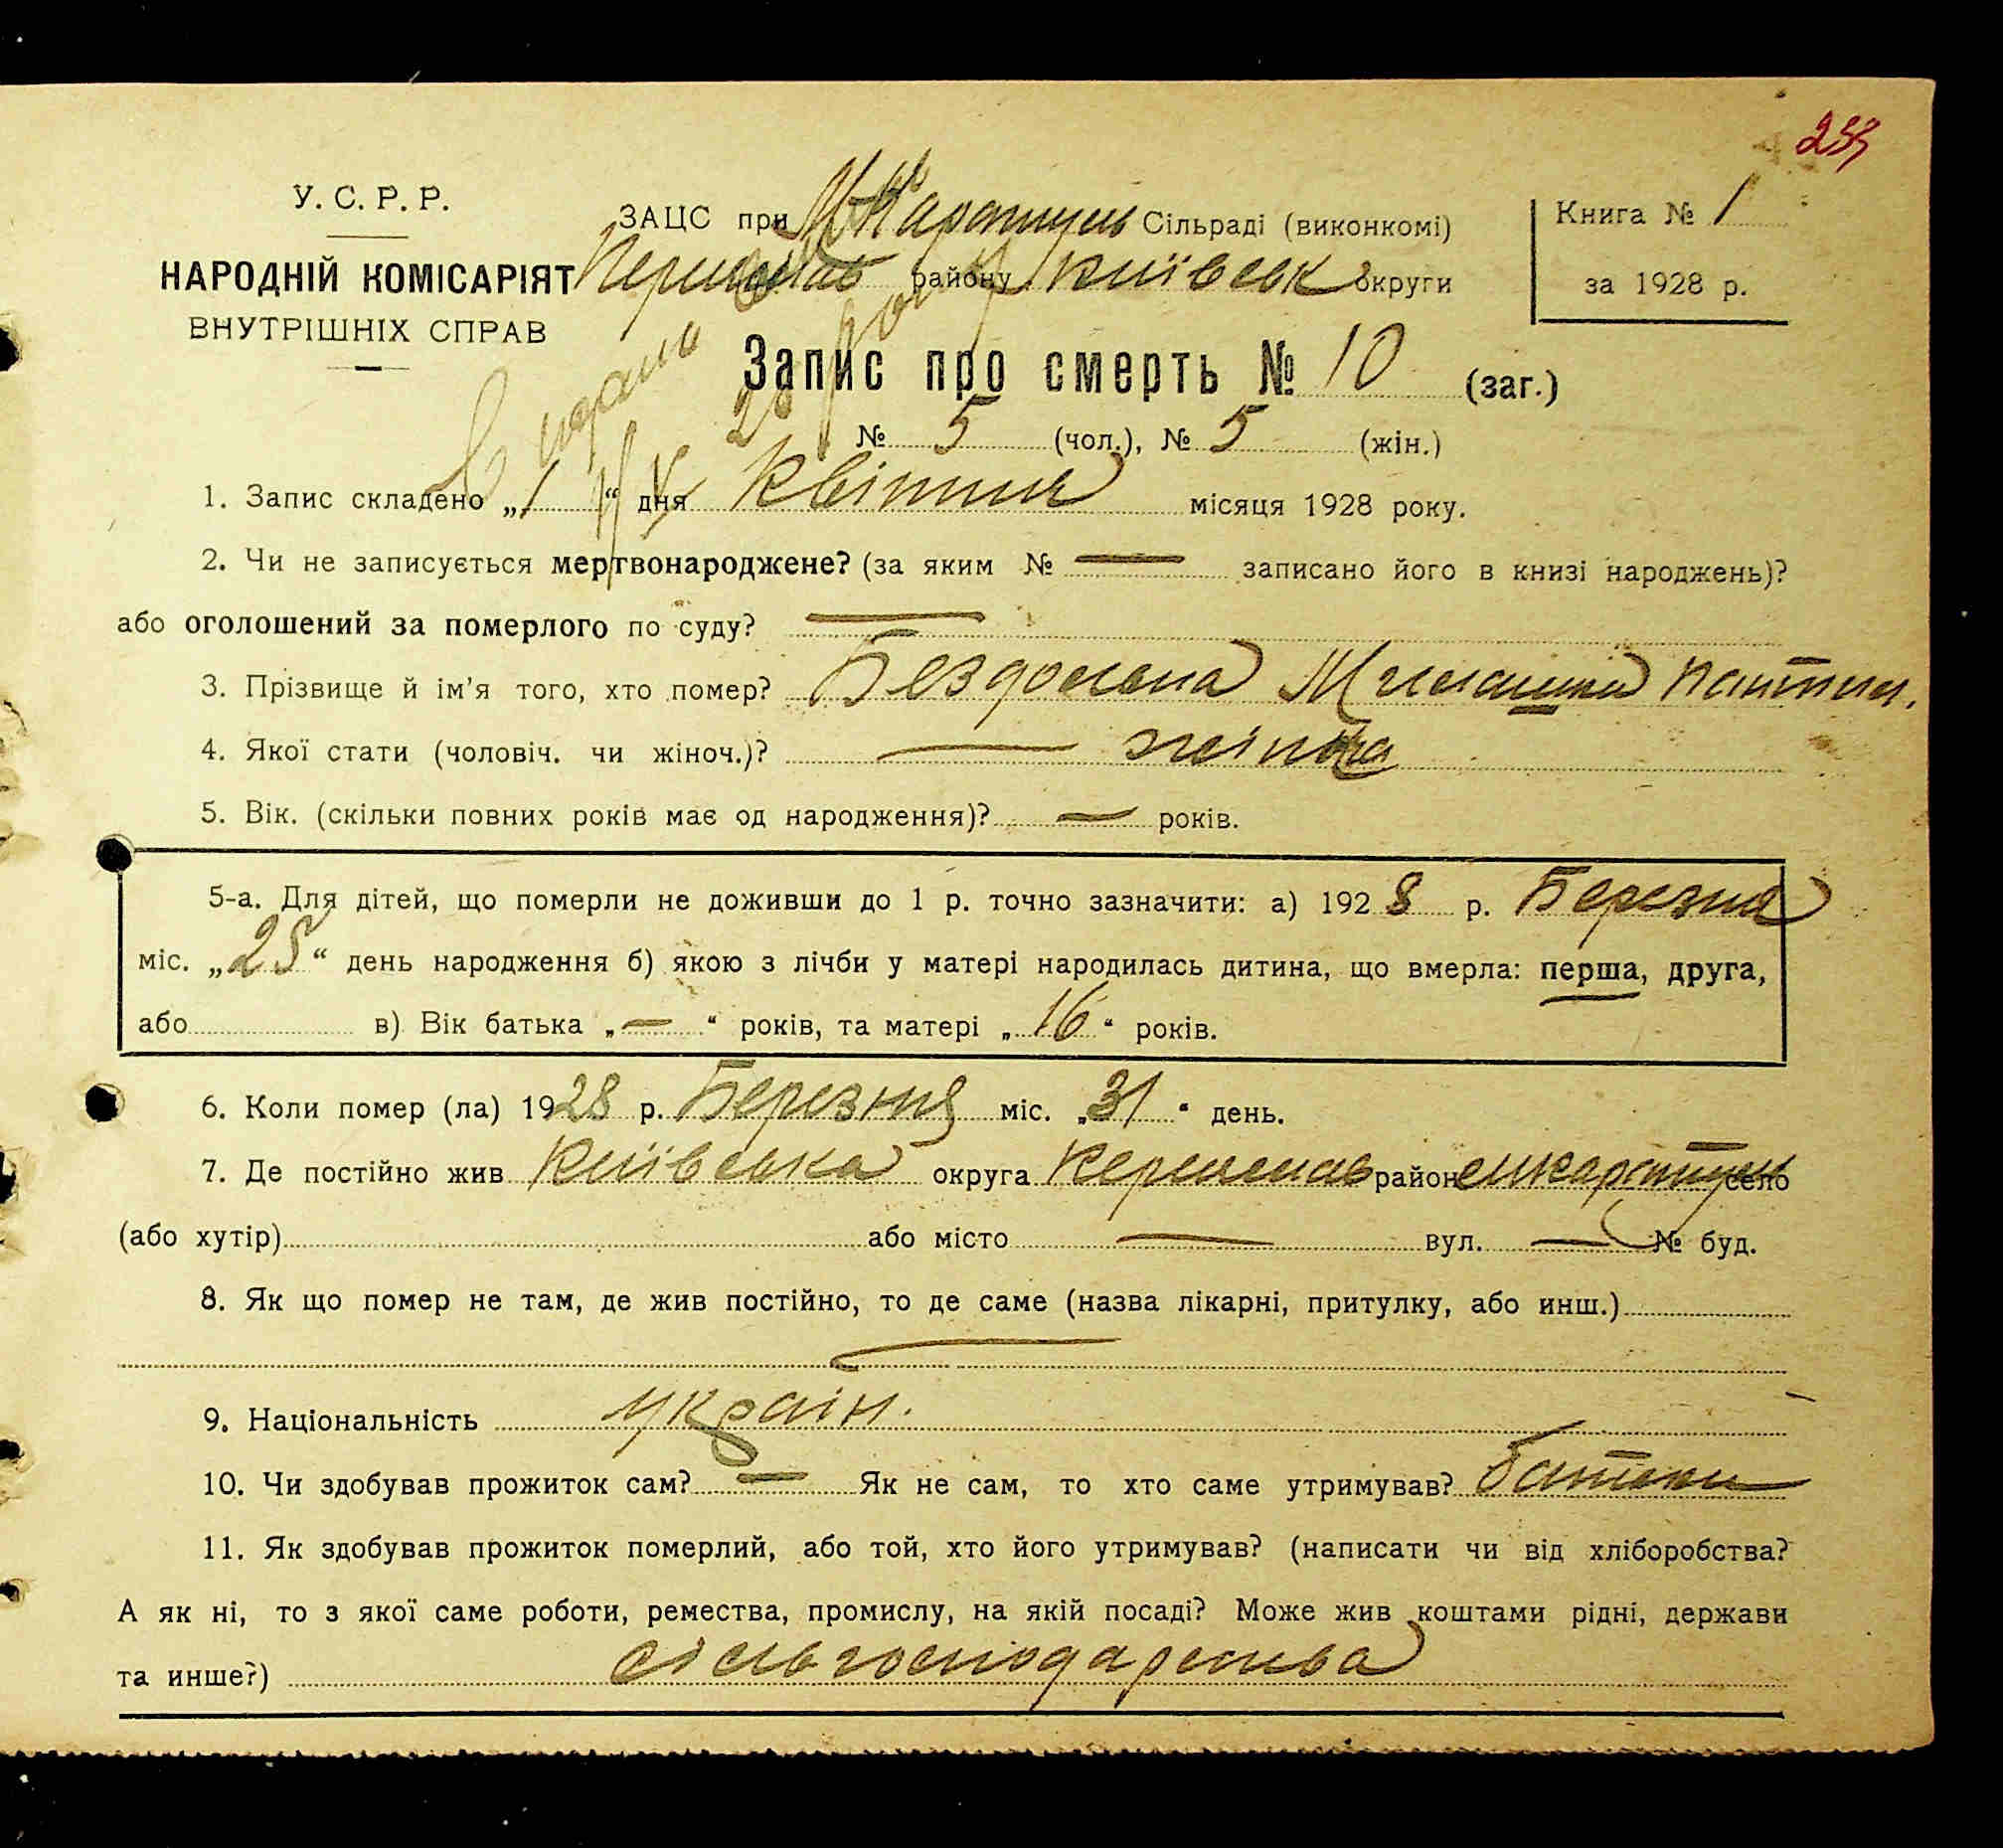 233
У. С. Р. Р.
НАРОДНІЙ КОМІСАРІЯТ
ВНУТРІШНІХ СПРАВ
ЗАЦС при М Каратуль Сільраді (виконкомі)
району Київськ округи
Книга № 1
за 1928 р.
Запис про смерть № 10 (заг.)
№ 5 (чол.), № 5 (жін.)
1. Запис складено „1“ дня Квітня місяця 1928 року.
2. Чи не записується мертвонароджене? (за яким № — записано його в книзі народжень)?
або оголошений за померлого по суду? —
3. Прізвище й ім'я того, хто помер? Бездольна
4. Якої стати (чоловіч. чи жіноч.)? — жіноча
5. Вік. (скільки повних років має од народження)? — років.
5-а. Для дітей, що померли не доживши до 1 р. точно зазначити: а) 1928 р. Березня
міс. „25“ день народження б) якою з лічби у матері народилась дитина, що вмерла: перша, друга,
або в) Вік батька „—“ років, та матері „16“ років.
6. Коли помер (ла) 1928 р. Березня міс. „31“ день.
7. Де постійно жив Київська округа район село
(або хутір) або місто — вул. — № буд.
8. Як що помер не там, де жив постійно, то де саме (назва лікарні, притулку, або инш.)
—
9. Національність україн.
10. Чи здобував прожиток сам? — Як не сам, то хто саме утримував? батьки
11. Як здобував прожиток померлий, або той, хто його утримував? (написати чи від хліборобства?
А як ні, то з якої саме роботи, ремества, промислу, на якій посаді? Може жив коштами рідні, держави
та инше?) сільгосподарства